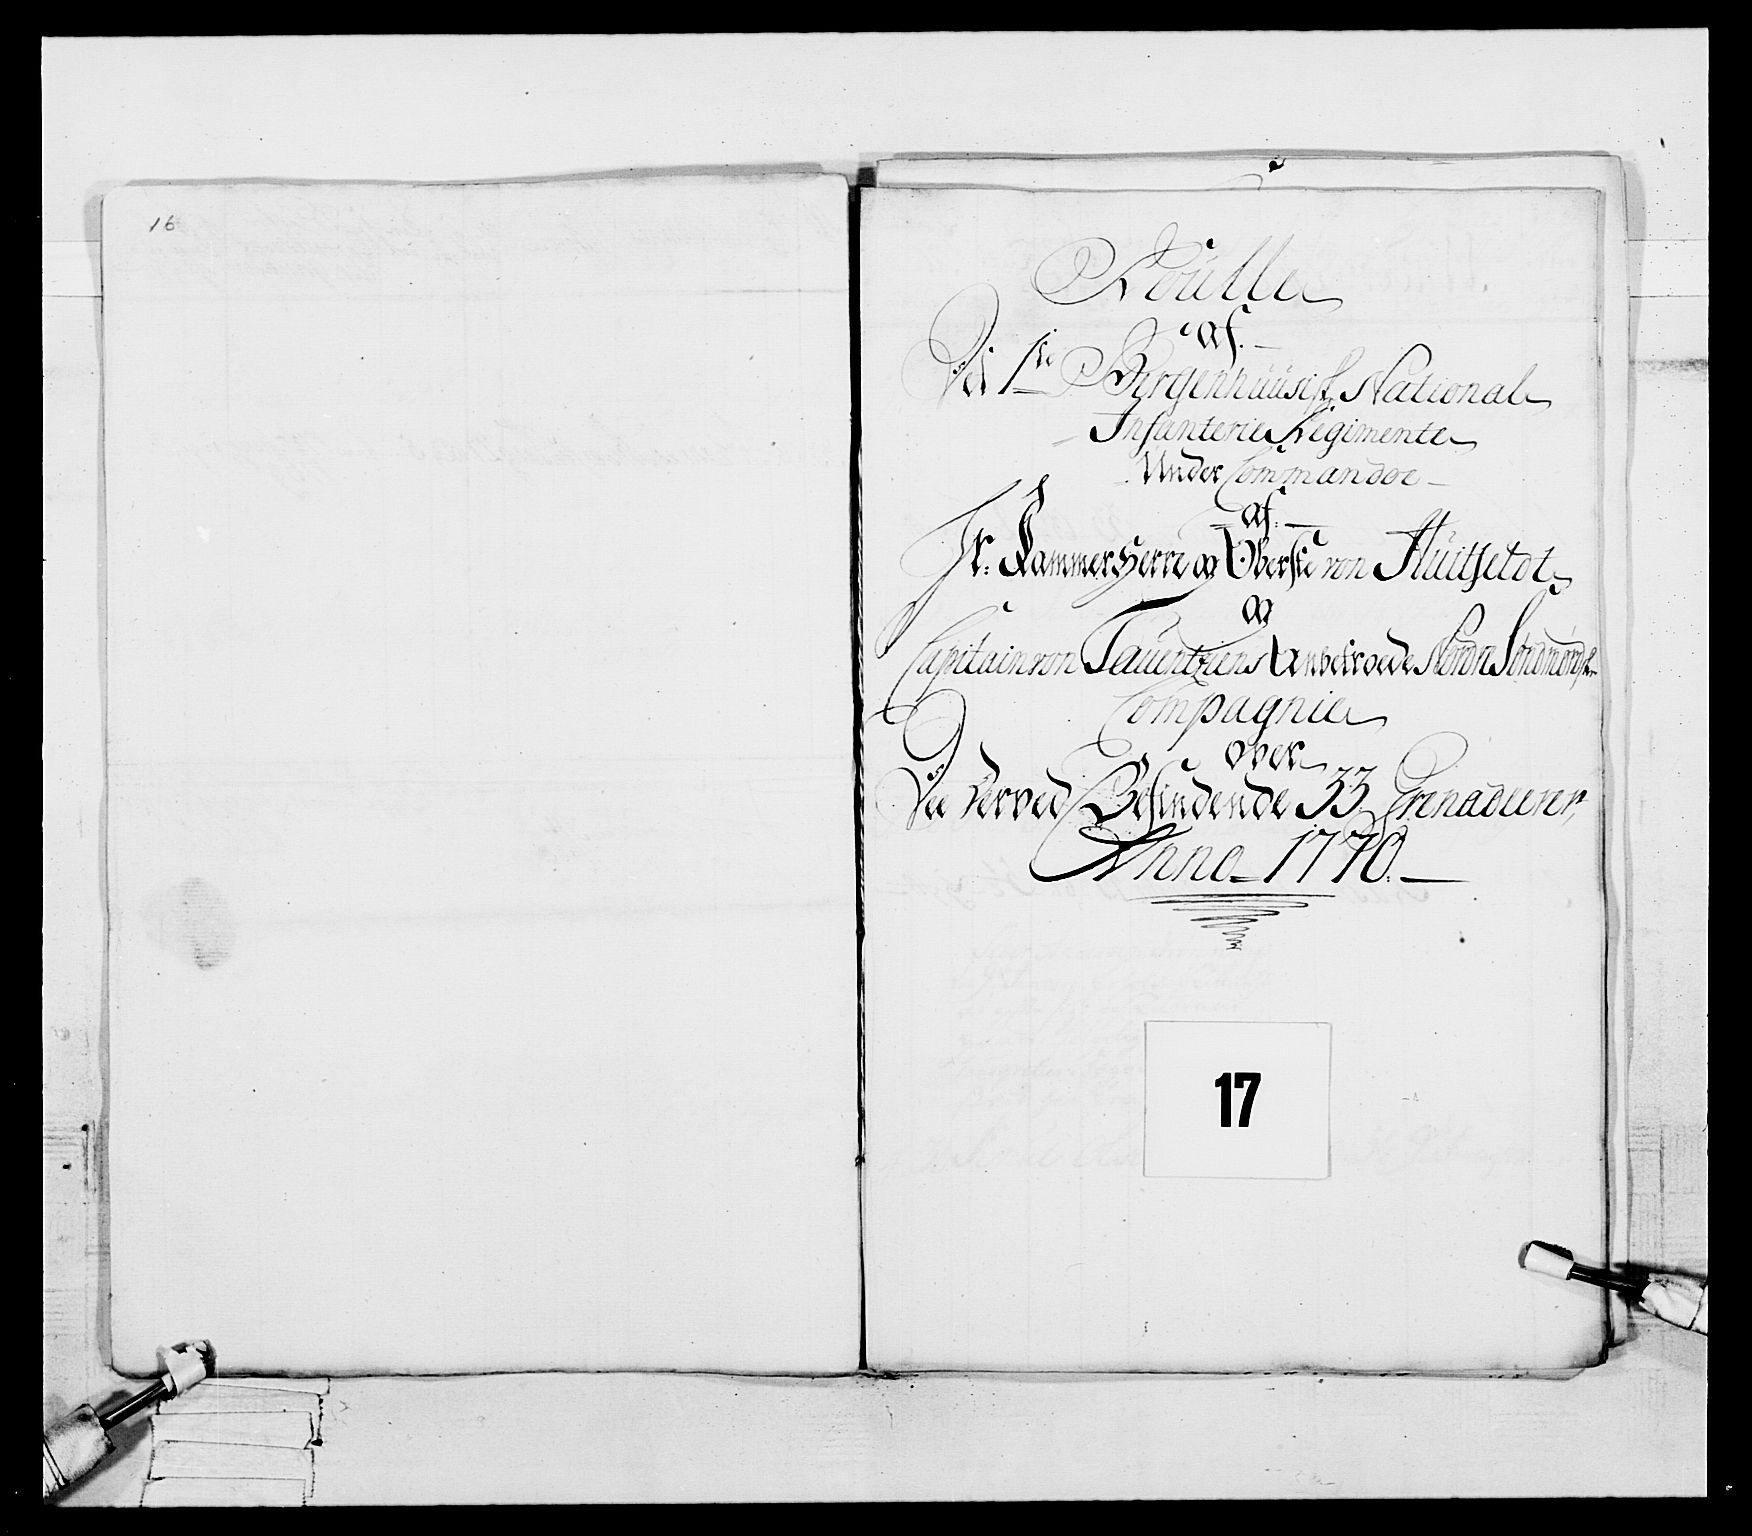 16
Roulle
af.
Det 1ste Bergenhuusisk National
Infanterie Regimente
Under Commandoe
af.
Hr: Kammer Herre og Oberste von Huitfeldt
og
Capitain von Tauentziens Anbetroede Nordre Söndmörske
Compagnie
over
Dee derved Befindende 33 Grenaderer,
Anno 1770.
17